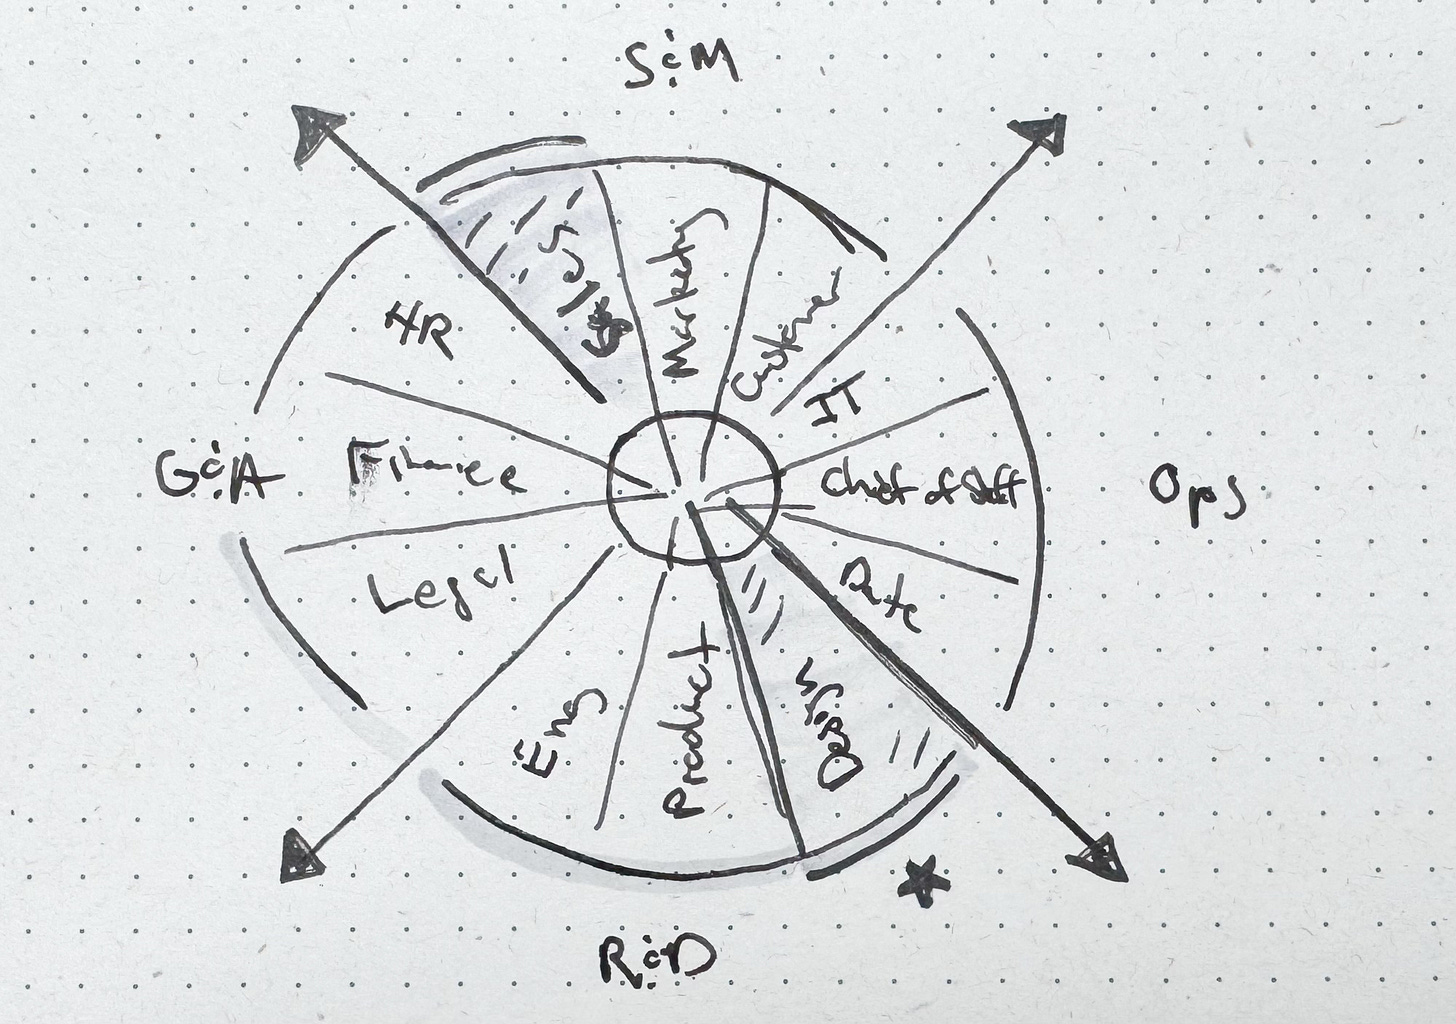 S&M
Sales
Marketing
Customer
HR
IT
G&A
Finance
Chief of Staff
Ops
Legal
Data
Eng
Product
Design
R&D